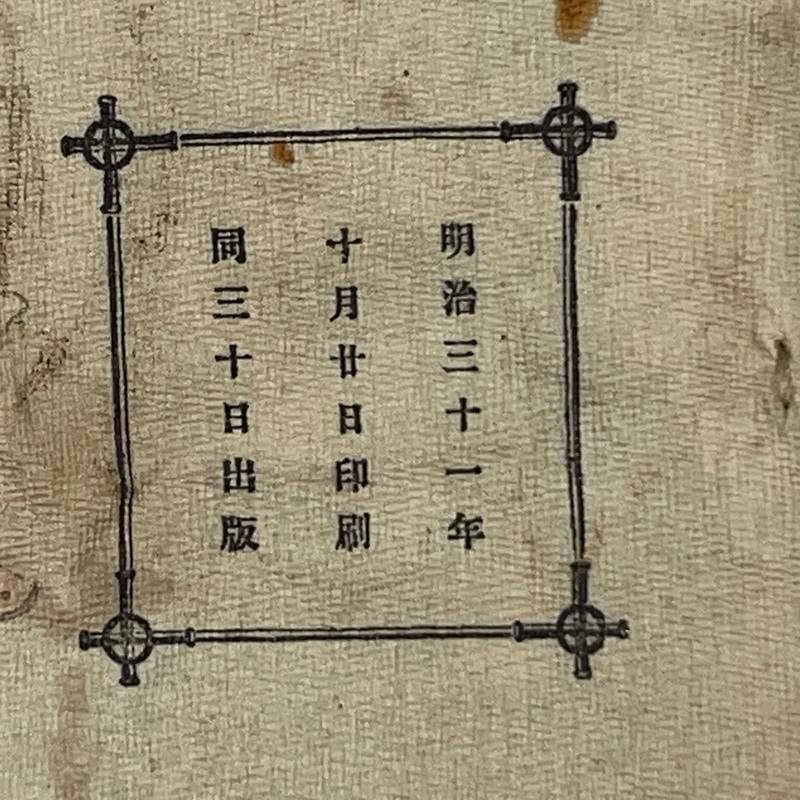 明治三十一年
十月廿日印刷
同三十日出版